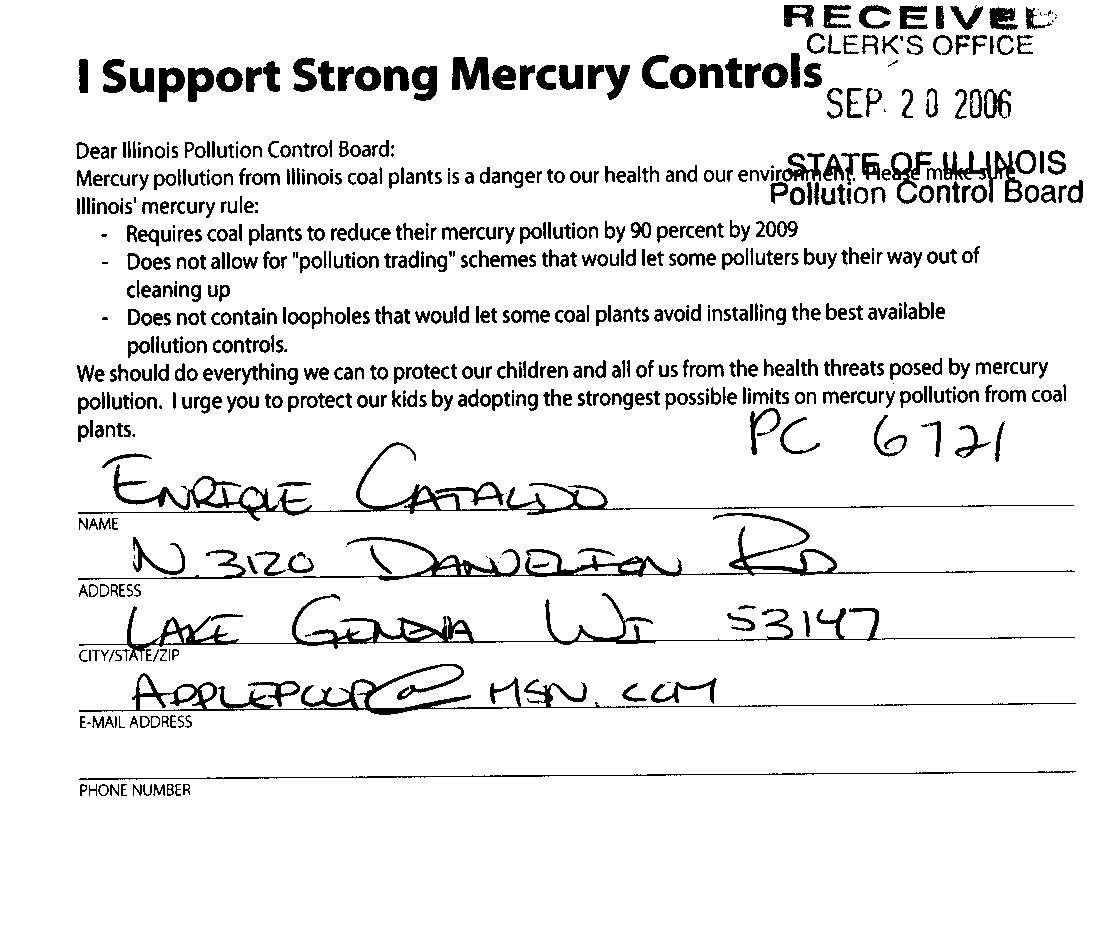 RECEIVED
CLERK'S OFFICE
I Support Strong Mercury Controls
SEP 20 2006
Dear Illinois Pollution Control Board:
STATE OF ILLINOIS
Mercury pollution from Illinois coal plants is a danger to our health and our environment. Please make sure
Pollution Control Board
Illinois' mercury rule:
- Requires coal plants to reduce their mercury pollution by 90 percent by 2009
- Does not allow for "pollution trading" schemes that would let some polluters buy their way out of
cleaning up
- Does not contain loopholes that would let some coal plants avoid installing the best available
pollution controls.
We should do everything we can to protect our children and all of us from the health threats posed by mercury
pollution. I urge you to protect our kids by adopting the strongest possible limits on mercury pollution from coal
plants.
PC 6721
ENRIQUE CATALDO
NAME
N 3120 DANDELION RD
ADDRESS
LAKE GENEVA WI 53147
CITY/STATE/ZIP
APPLEPOOP@MSN.COM
E-MAIL ADDRESS
PHONE NUMBER